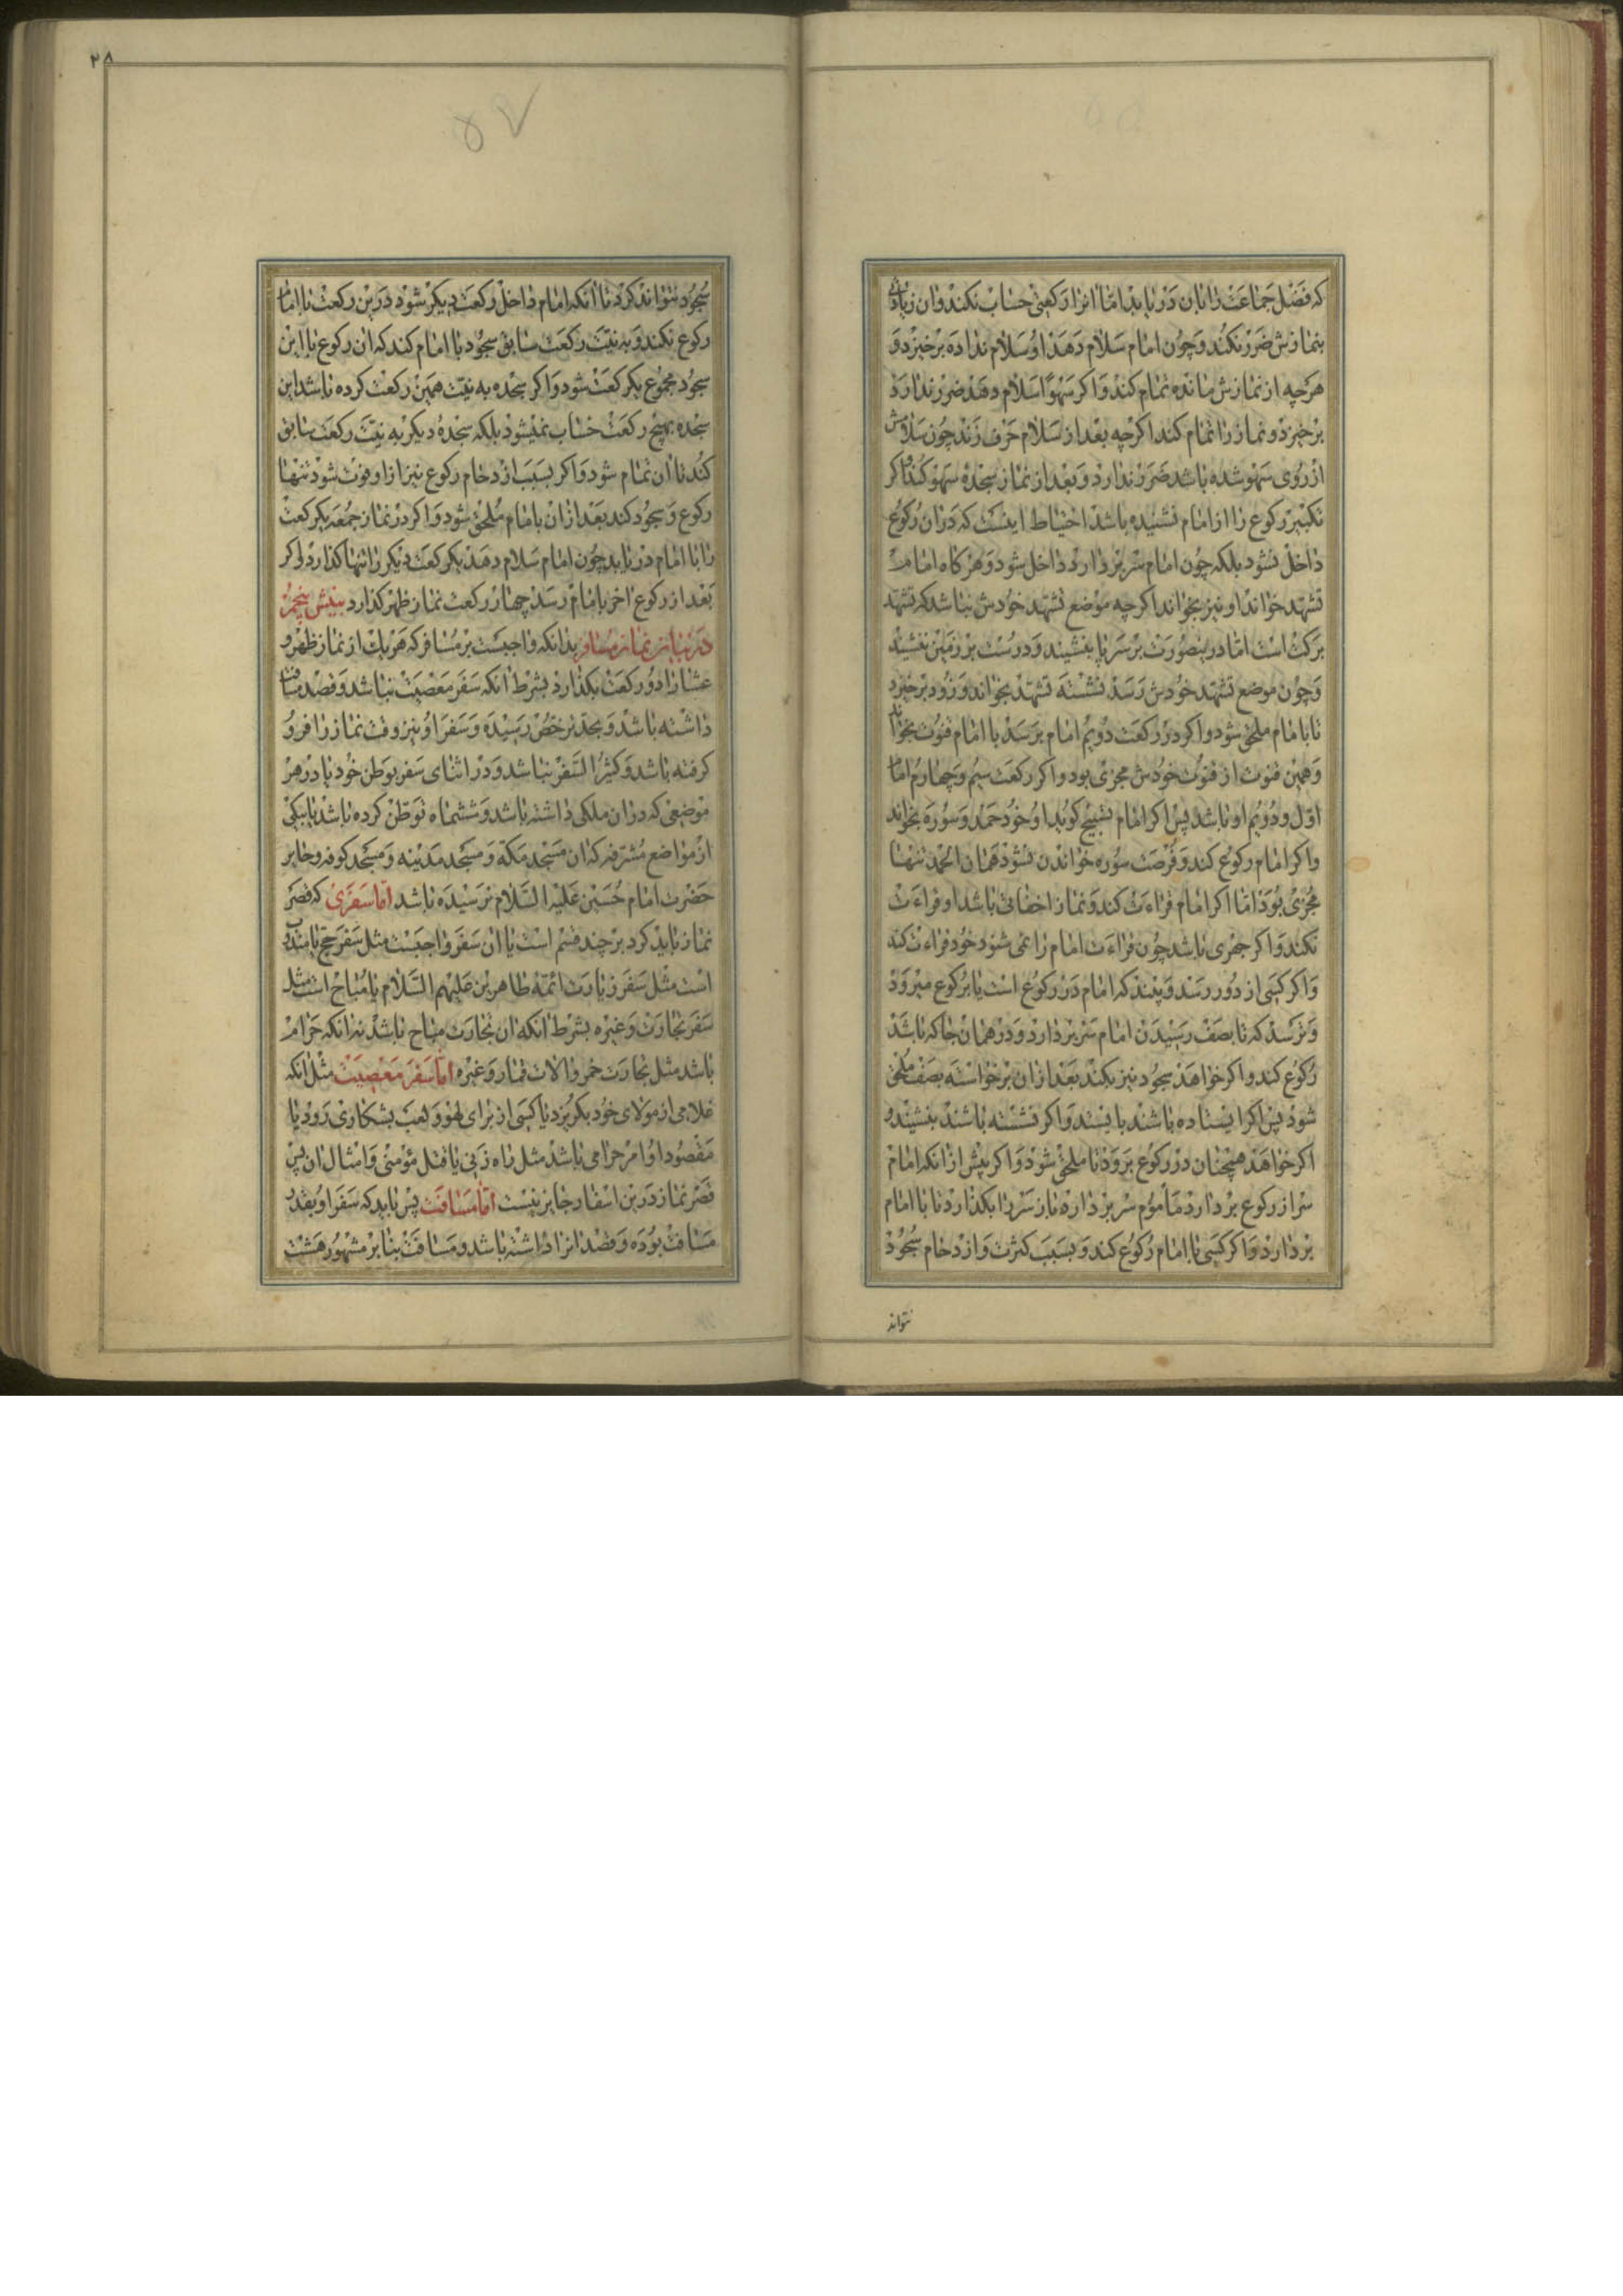 که فضل جماعت را بان دریابد اما انرا رکعتی حساب نکند و ان زیادتی
بنمازش ضرر نکند و چون امام سلام دهد او سلام نداده برخیزد و
هرچه از نمازش مانده تمام کند و اکر سهوا سلام دهد ضرر ندارد
برخیزد و نماز را تمام کند اکرچه بعد از سلام حرف زند چون سلامش
از روی سهو شده باشد ضرر ندارد و بعد از نماز سجده سهو کند و اکر
تکبیر رکوع را از امام نشنیده باشد احتیاط اینست که در ان رکوع
داخل نشود بلکه چون امام سر بردارد داخل شود و هرکاه امام
تشهد خواند او نیز بخواند اکرچه موضع تشهد خودش نباشد که تشهد
برکت است اما در ینصورت بر سر پا بنشیند و درست بر زمین ننشیند
و چون موضع تشهد خودش رسد نشسته تشهد بخواند و زود برخیزد
تا بامام ملحق شود و اکر در رکعت دویم امام برسد با امام قنوت بخواند
و همین قنوت از قنوت خودش مجزی بود و اکر رکعت سیم و چهارم امام
اول و دویم او باشد پس اکر امام تسبیح کوید او خود حمد و سوره بخواند
و اکر امام رکوع کند و فرصت سوره خواندن نشود همان الحمد تنها
مجزی بود اما اکر امام قراءت کند و نماز اخفاتی باشد او قراءت
نکند و اکر جهری باشد چون قراءت امام را نمی شنود خود قراءت کند
و اکر کسی از دور رسد و بیند که امام در رکوع است یا برکوع میرود
و ترسد که تا بصف رسیدن امام سر بردارد و در همان جا که باشد
رکوع کند و اکر خواهد سجود نیز بکند بعد از ان برخواسته بصف ملحق
شود پس اکر ایستاده باشند بایستد و اکر نشسته باشند بنشیند و
اکر خواهد همچنان در رکوع برود تا ملحق شود و اکر پیش از انکه امام
سر از رکوع بردارد مأموم سر بردارد باز سر را بکذارد تا با امام
بردارد و اکر کسی با امام رکوع کند و بسبب کثرت و ازدحام سجود
نتواند
۲۸
سجود نتواند کرد تا انکه امام داخل رکعت دیکر شود در ین رکعت با امام
رکوع نکند و به نیت رکعت سابق سجود با امام کند که ان رکوع با این
سجود مجموع یکرکعت شود و اکر سجده به نیت همین رکعت کرده باشد این
سجده بهیچ رکعت حساب نمیشود بلکه سجدهٔ دیکر به نیت رکعت سابق
کند تا ان تمام شود و اکر بسبب ازدحام رکوع نیز از او فوت شود تنها
رکوع و سجود کند بعد از ان بامام ملحق شود و اکر در نماز جمعه یکرکعت
را با امام دریابد چون امام سلام دهد یکرکعت دیکر را تنها کذارد و اکر
بعد از رکوع اخر بامام رسد چهار رکعت نماز ظهر کذارد بینش پنجم
در بیان نماز مسافر بدانکه واجبست بر مسافر که هریک از نماز ظهر و
عشا را دو رکعت بکذارد بشرط انکه سفر معصیت نباشد و قصد مسافت
داشته باشد و بحد ترخص رسیده و سفر او نیز وقت نماز را فرو
کرفته باشد و کثیر السفر نباشد و در اثنای سفر بوطن خود یا در هر
موضعی که در ان ملکی داشته باشد و ششماه توطن کرده باشد یا بیکی
از مواضع مشرفه که ان مسجد مکه و مسجد مدینه و مسجد کوفه و حایر
حضرت امام حسین علیه السلام نرسیده باشد اما سفری که قصر
نماز باید کرد بر چند قسم است یا ان سفر واجبست مثل سفر حج یا مندوب
است مثل سفر زیارت ائمهٔ طاهرین علیهم السلام یا مباح است مثل
سفر تجارت و غیره بشرط انکه ان تجارت مباح باشد نه انکه حرام
باشد مثل تجارت خمر و الات قمار و غیره اما سفر معصیت مثل انکه
غلامی از مولای خود بکریزد یا کسی از برای لهو و لعب بشکار رود یا
مقصود او امر حرامی باشد مثل راه زنی یا قتل مؤمنی و امثال ان پس
قصر نماز در ین اسفار جایز نیست اما مسافت پس باید که سفر او بقدر
مسافت بوده و قصد انرا داشته باشد و مسافت بنا بر مشهور هشت